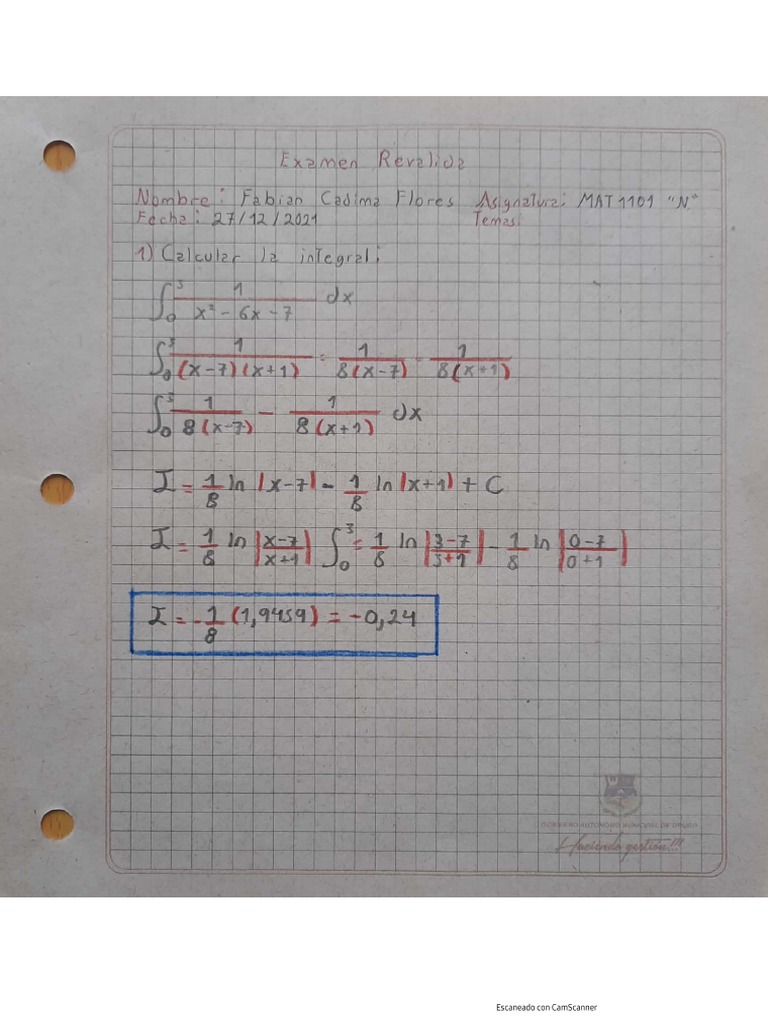 Examen Revalida
Nombre: Fabian Cadima Flores Asignatura: MAT1101 "N"
Fecha: 27/12/2021 Temas:
1) Calcular la integral:
∫₀³ 1/(x² - 6x - 7) dx
∫₀³ 1/((x-7)(x+1)) = 1/(8(x-7)) - 1/(8(x+1))
∫₀³ 1/(8(x-7)) - 1/(8(x+1)) dx
I = 1/8 ln |x-7| - 1/8 ln |x+1| + C
I = 1/8 ln |(x-7)/(x+1)| ∫₀³ = 1/8 ln |(3-7)/(3+1)| - 1/8 ln |(0-7)/(0+1)|
I = -1/8 (1,9459) = -0,24
GOBIERNO AUTÓNOMO MUNICIPAL DE ORURO
Haciendo gestión!!!
Escaneado con CamScanner